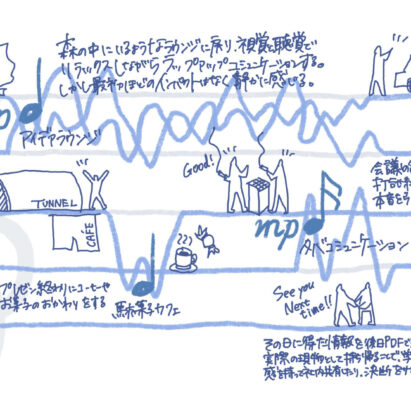 森の中にいるようなラウンジに戻り、視覚と聴覚で
リラックスしながらラップアップコミュニケーションする。
しかし最初ほどのインパクトはなく静かに感じる。
アイデアラウンジ
Good!
会議
TUNNEL
CAFÉ
mp
夕べコミュニケーション
プレゼン終わりにコーヒーや
お菓子のおかわりをする
駄菓子カフェ
See you
Next time!!
その日に得た情報を後日PDFで
実際の現物として持ち帰ることで、
感を持って社内共有したり、決